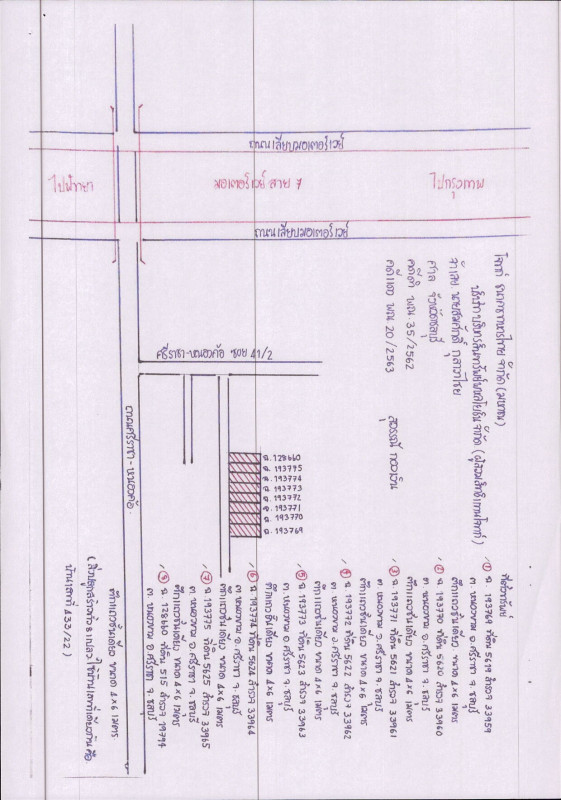 โจทก์ ธนาคารทหารไทย จำกัด (มหาชน)
บริษัท บริหารสินทรัพย์ พหลโยธิน จำกัด (ผู้สวมสิทธิแทนโจทก์)
จำเลย นายสมศักดิ์
ศาล จังหวัดชลบุรี
คดีดำ ผบ. 35/2562
คดีแดง ผบ. 20/2563
ถนนเลียบมอเตอร์เวย์
ไปพัทยา
มอเตอร์เวย์ สาย 7
ไปกรุงเทพ
ถนนเลียบมอเตอร์เวย์
ศรีราชา-หนองค้อ ซอย 41/2
ถนนศรีราชา-หนองค้อ
ฉ. 128660
ฉ. 193775
ฉ. 193774
ฉ. 193773
ฉ. 193772
ฉ. 193771
ฉ. 193770
ฉ. 193769
ที่ตั้งทรัพย์
① ฉ. 193769 ที่ดิน 5619 สำรวจ 33959
ต. หนองขาม อ. ศรีราชา จ. ชลบุรี
ตึกแถวชั้นเดียว ขนาด 4×6 เมตร
② ฉ. 193770 ที่ดิน 5620 สำรวจ 33960
ต. หนองขาม อ. ศรีราชา จ. ชลบุรี
ตึกแถวชั้นเดียว ขนาด 4×6 เมตร
③ ฉ. 193771 ที่ดิน 5621 สำรวจ 33961
ต. หนองขาม อ. ศรีราชา จ. ชลบุรี
ตึกแถวชั้นเดียว ขนาด 4×6 เมตร
④ ฉ. 193772 ที่ดิน 5622 สำรวจ 33962
ต. หนองขาม อ. ศรีราชา จ. ชลบุรี
ตึกแถวชั้นเดียว ขนาด 4×6 เมตร
⑤ ฉ. 193773 ที่ดิน 5623 สำรวจ 33963
ต. หนองขาม อ. ศรีราชา จ. ชลบุรี
ตึกแถวชั้นเดียว ขนาด 4×6 เมตร
⑥ ฉ. 193774 ที่ดิน 5624 สำรวจ 33964
ต. หนองขาม อ. ศรีราชา จ. ชลบุรี
ตึกแถวชั้นเดียว ขนาด 4×6 เมตร
⑦ ฉ. 193775 ที่ดิน 5625 สำรวจ 33965
ต. หนองขาม อ. ศรีราชา จ. ชลบุรี
ตึกแถวชั้นเดียว ขนาด 4×6 เมตร
⑧ ฉ. 128660 ที่ดิน 515 สำรวจ 19794
ต. หนองขาม อ. ศรีราชา จ. ชลบุรี
ตึกแถวชั้นเดียว ขนาด 4×6 เมตร
(สิ่งปลูกสร้างทั้ง 8 แปลง ใช้บ้านเลขที่เดียวกัน คือ
บ้านเลขที่ 233/22)